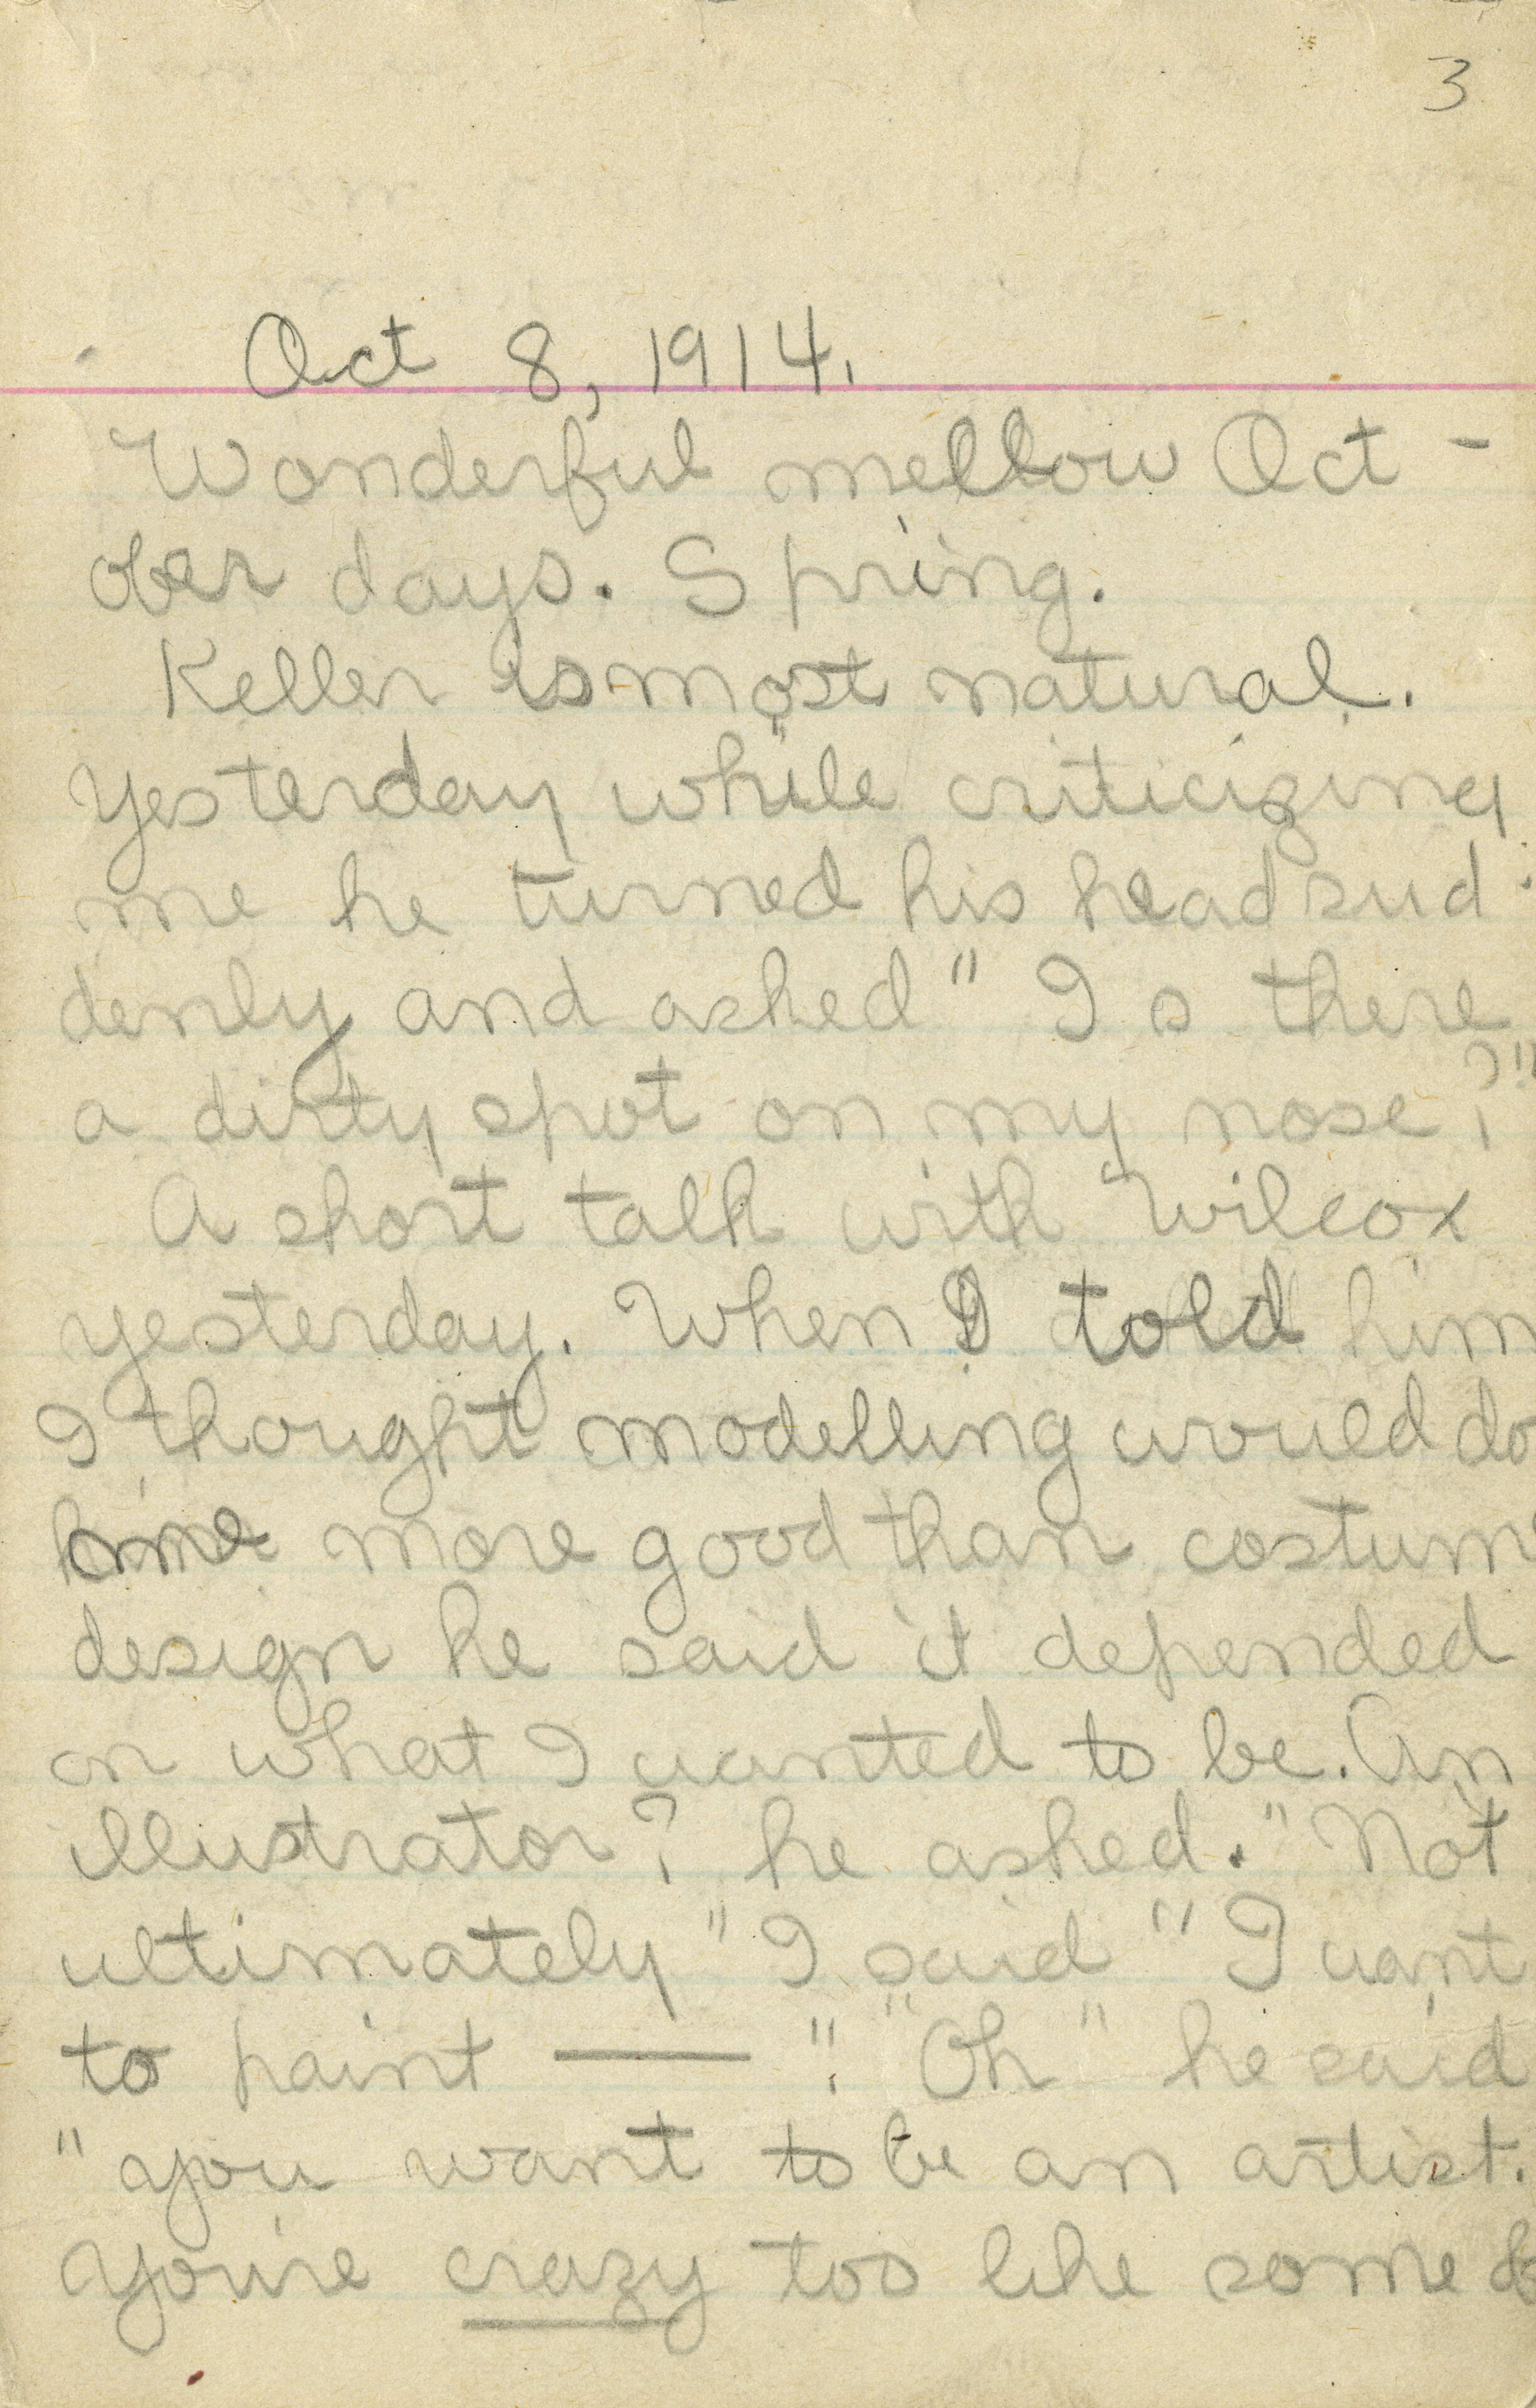 3
Oct 8, 1914.
Wonderful mellow Oct -
ober days. Spring.
Keller is most natural.
Yesterday while criticizing
me he turned his head sud -
denly and asked " Is there
a dirty spot on my nose?"
A short talk with Wilcox
yesterday. When I told him
I thought modelling would do
me more good than costume
design he said it depended
on what I wanted to be. An
illustrator? he asked. "Not
ultimately" I said " I want
to paint —— ". "Oh" he said
"you want to be an artist.
You're crazy too like some